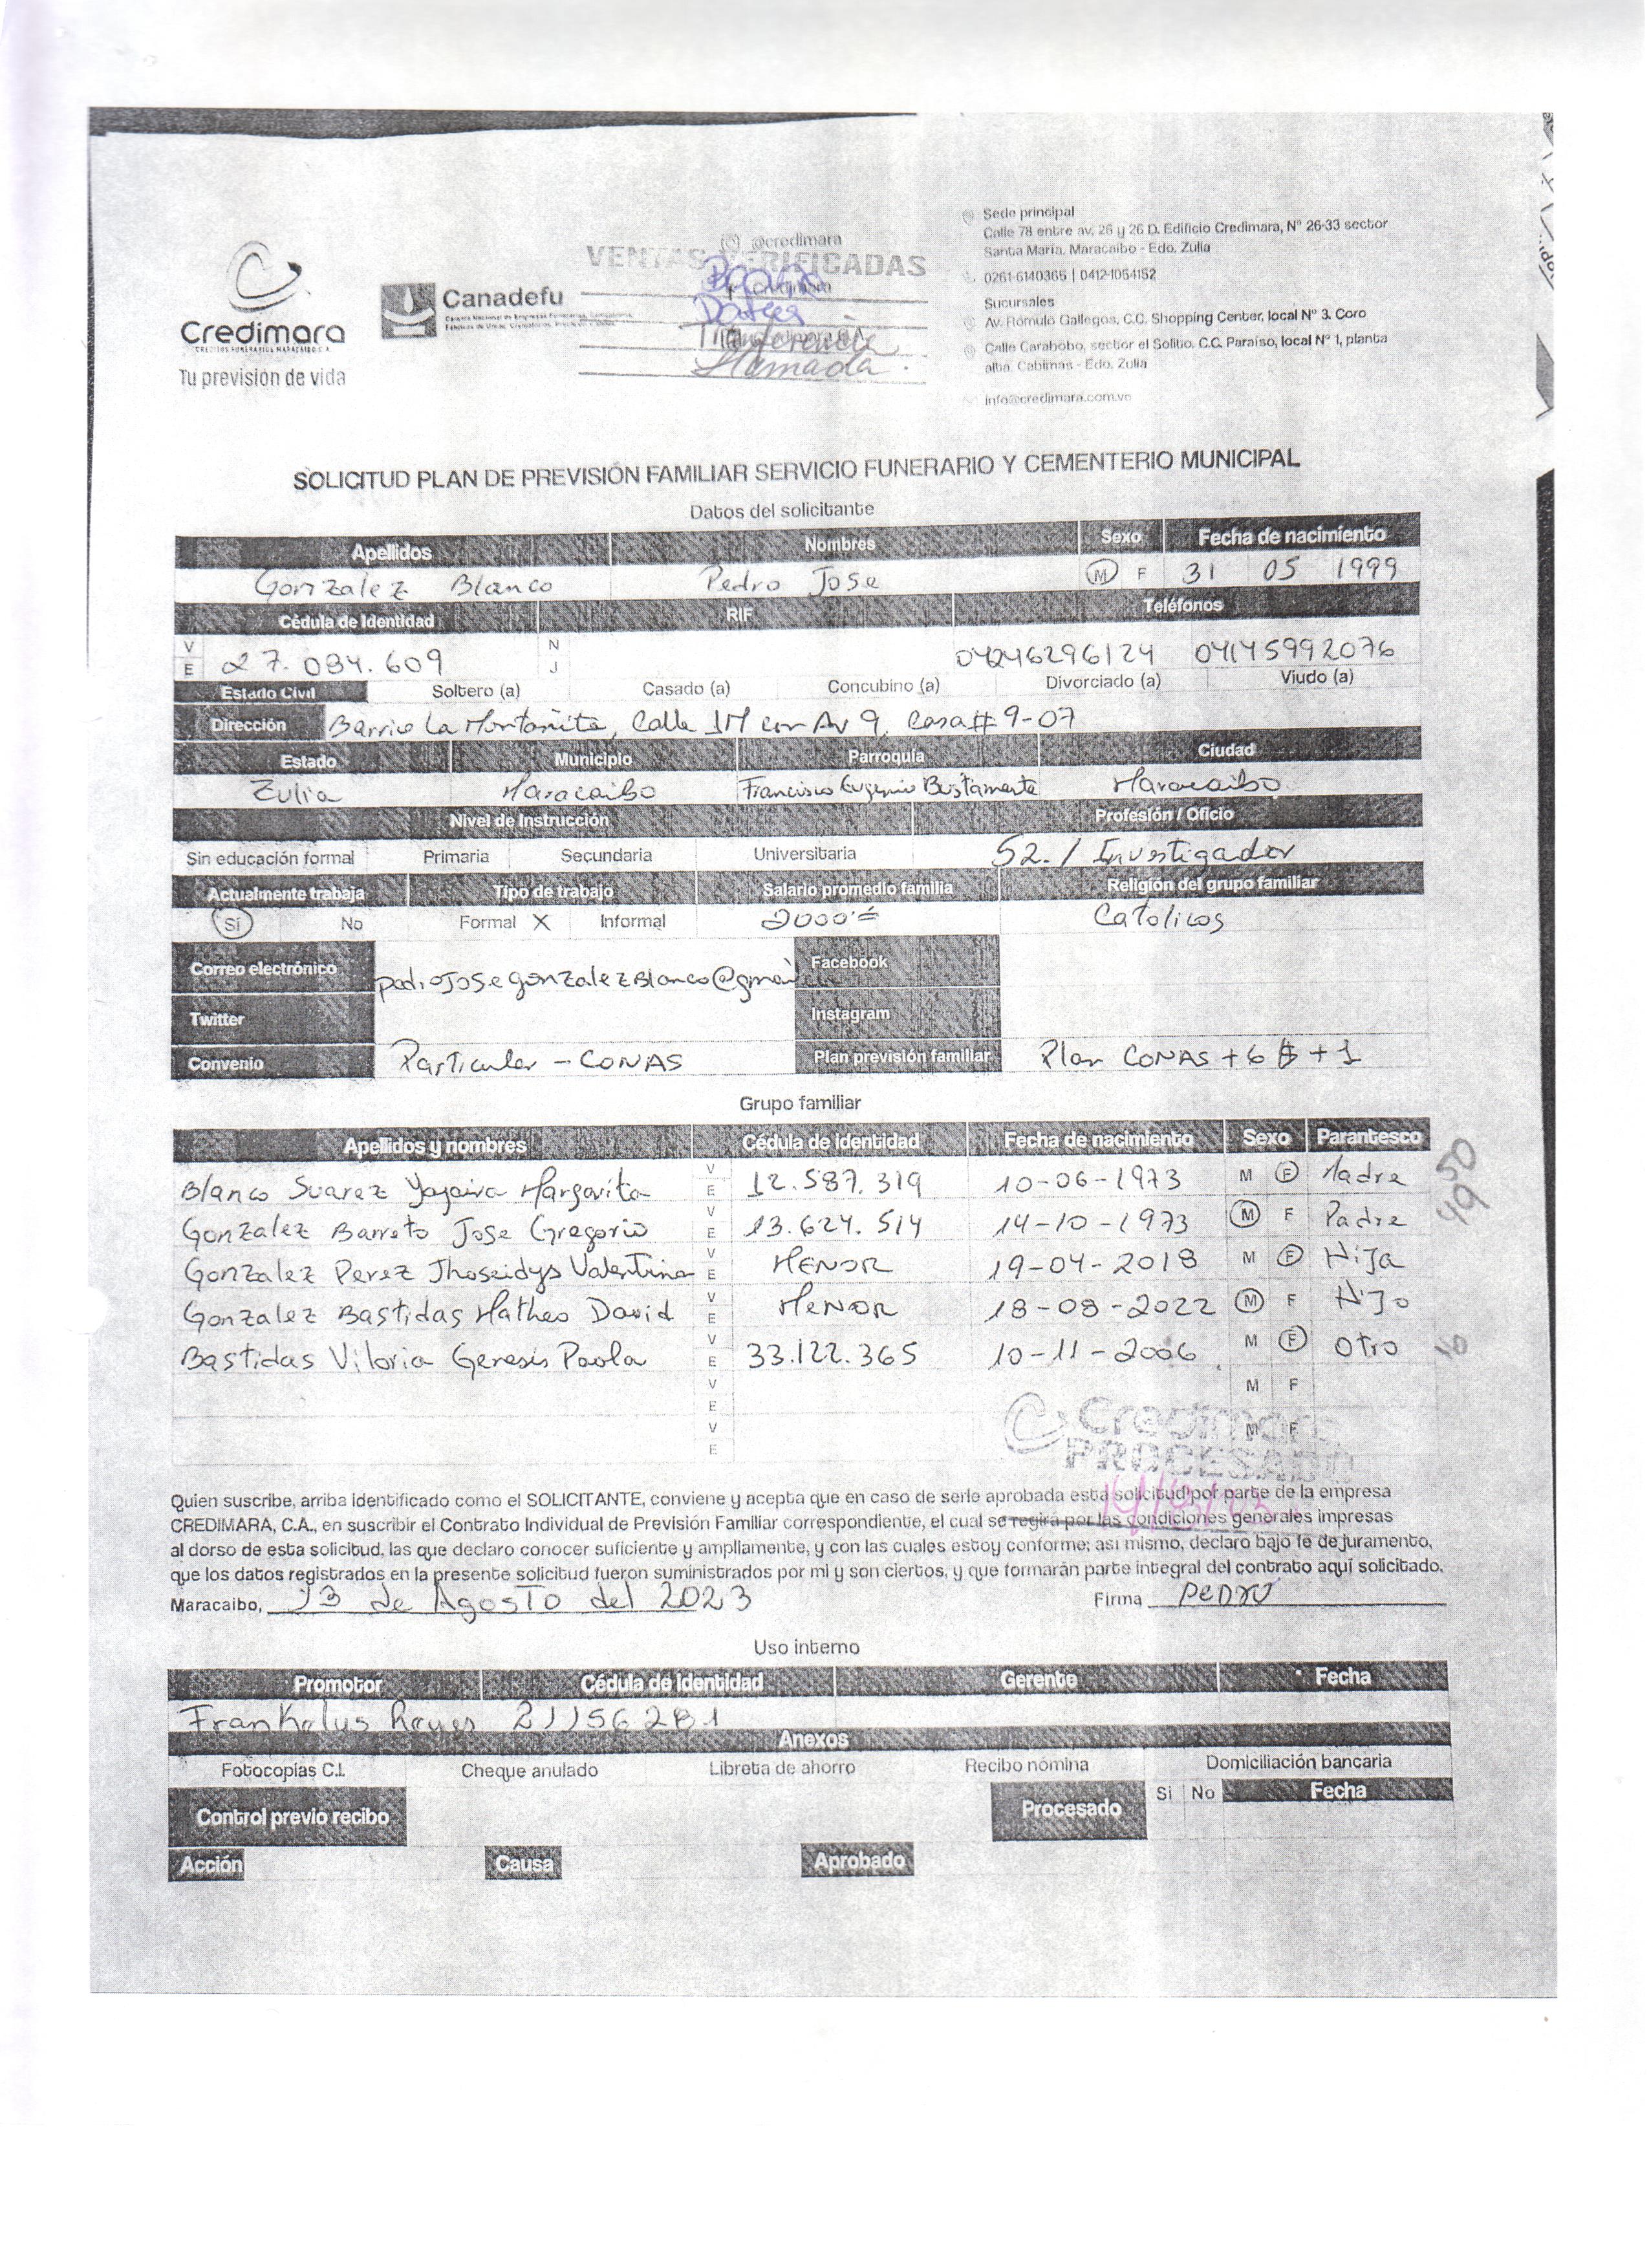 Credimara
CRÉDITOS FUNERARIOS MARACAIBO C.A.
Tu previsión de vida
Canadefu
@credimara
VENTAS VERIFICADAS
Llamada
Sede principal
Calle 78 entre av. 26 y 26 D. Edificio Credimara, Nº 26-33 sector
Santa María. Maracaibo - Edo. Zulia
0261-6140365 | 0412-1054152
Sucursales
Av. Rómulo Gallegos, C.C. Shopping Center, local Nº 3. Coro
Calle Carabobo, sector el Solito, C.C. Paraíso, local Nº 1, planta
alta. Cabimas - Edo. Zulia
info@credimara.com.ve
SOLICITUD PLAN DE PREVISIÓN FAMILIAR SERVICIO FUNERARIO Y CEMENTERIO MUNICIPAL
Datos del solicitante
Apellidos Nombres Sexo Fecha de nacimiento
Gonzalez Blanco Pedro Jose M F 31 05 1999
Cédula de Identidad RIF Teléfonos
V E 27.084.609 N J 04246296124 04145992076
Estado Civil Soltero (a) Casado (a) Concubino (a) Divorciado (a) Viudo (a)
Dirección Barrio La Montañita, Calle 1M con Av 9, Casa # 9-07
Estado Municipio Parroquia Ciudad
Zulia Maracaibo Francisco Eugenio Bustamante Maracaibo
Nivel de Instrucción Profesión / Oficio
Sin educación formal Primaria Secundaria Universitaria S2. / Investigador
Actualmente trabaja Tipo de trabajo Salario promedio familia Religión del grupo familiar
Sí No Formal X Informal 2000 Catolicos
Correo electrónico pedroJosegonzalezBlanco@gmail Facebook
Twitter Instagram
Convenio Particular - CONAS Plan previsión familiar Plan CONAS + 6 $ + 1
Grupo familiar
Apellidos y nombres Cédula de identidad Fecha de nacimiento Sexo Parentesco
Blanco Suarez Yajaira Margarita V E 12.587.319 10-06-1973 M F Madre
Gonzalez Barreto Jose Gregorio V E 13.624.514 14-10-1973 M F Padre
Gonzalez Perez Jhoseidys Valentina V E MENOR 19-04-2018 M F Hija
Gonzalez Bastidas Matheo David V E MENOR 18-08-2022 M F Hijo
Bastidas Viloria Genesis Paola V E 33.122.365 10-11-2006 M F Otro
V E M F
V E M F
49 50
Credimara
PROCESADO
Quien suscribe, arriba identificado como el SOLICITANTE, conviene y acepta que en caso de serle aprobada esta solicitud por parte de la empresa
CREDIMARA, C.A., en suscribir el Contrato Individual de Previsión Familiar correspondiente, el cual se regirá por las condiciones generales impresas
al dorso de esta solicitud, las que declaro conocer suficiente y ampliamente, y con las cuales estoy conforme; así mismo, declaro bajo fe de juramento,
que los datos registrados en la presente solicitud fueron suministrados por mi y son ciertos, y que formarán parte integral del contrato aquí solicitado.
Maracaibo, 13 de Agosto del 2023 Firma Pedro
Uso interno
Promotor Cédula de identidad Gerente Fecha
Franklus Reyes 21156281
Anexos
Fotocopias C.I. Cheque anulado Libreta de ahorro Recibo nómina Domiciliación bancaria
Control previo recibo Procesado Si No Fecha
Acción Causa Aprobado